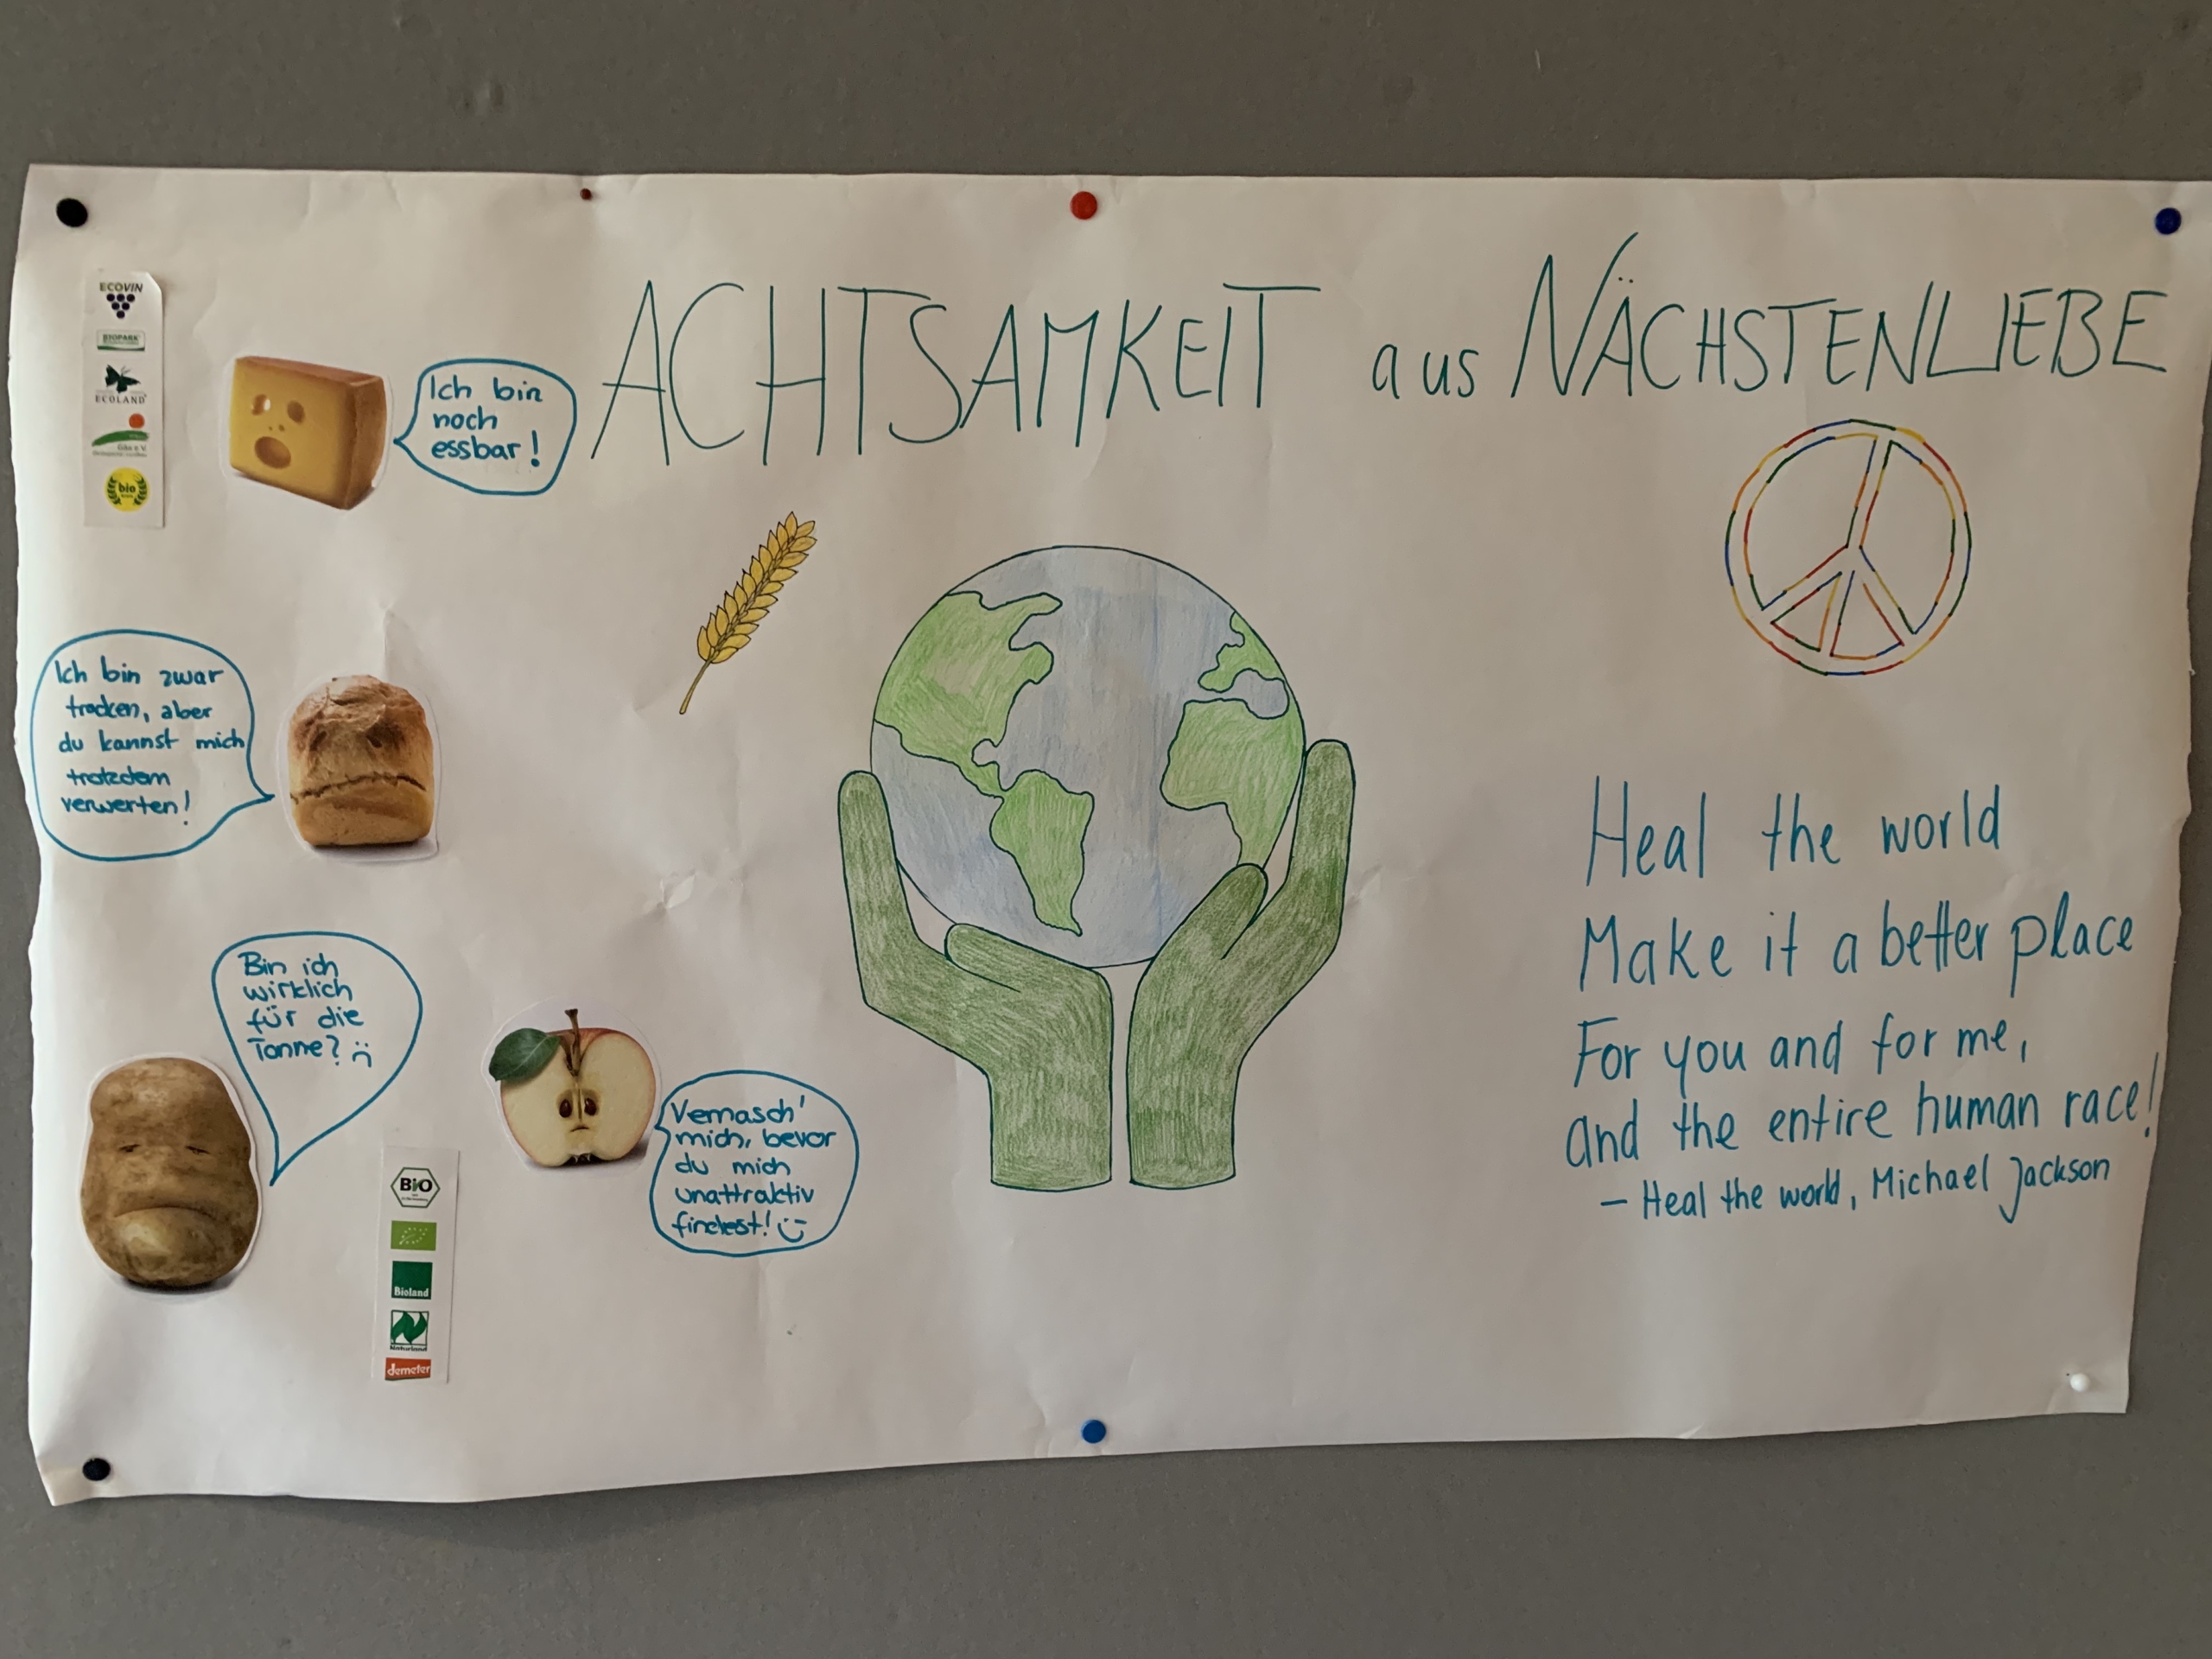 ACHTSAMKEIT aus NÄCHSTENLIEBE
ECOVIN
BIOPARK
ECOLAND
Gäa e.V.
bio
Ich bin
noch
essbar!
Ich bin zwar
trocken, aber
du kannst mich
trotzdem
verwerten!
Bin ich
wirklich
für die
Tonne? :(
Vernasch'
mich, bevor
du mich
unattraktiv
findest! :)
BiO
Bioland
Naturland
demeter
Heal the world
Make it a better place
For you and for me,
and the entire human race!
– Heal the world, Michael Jackson